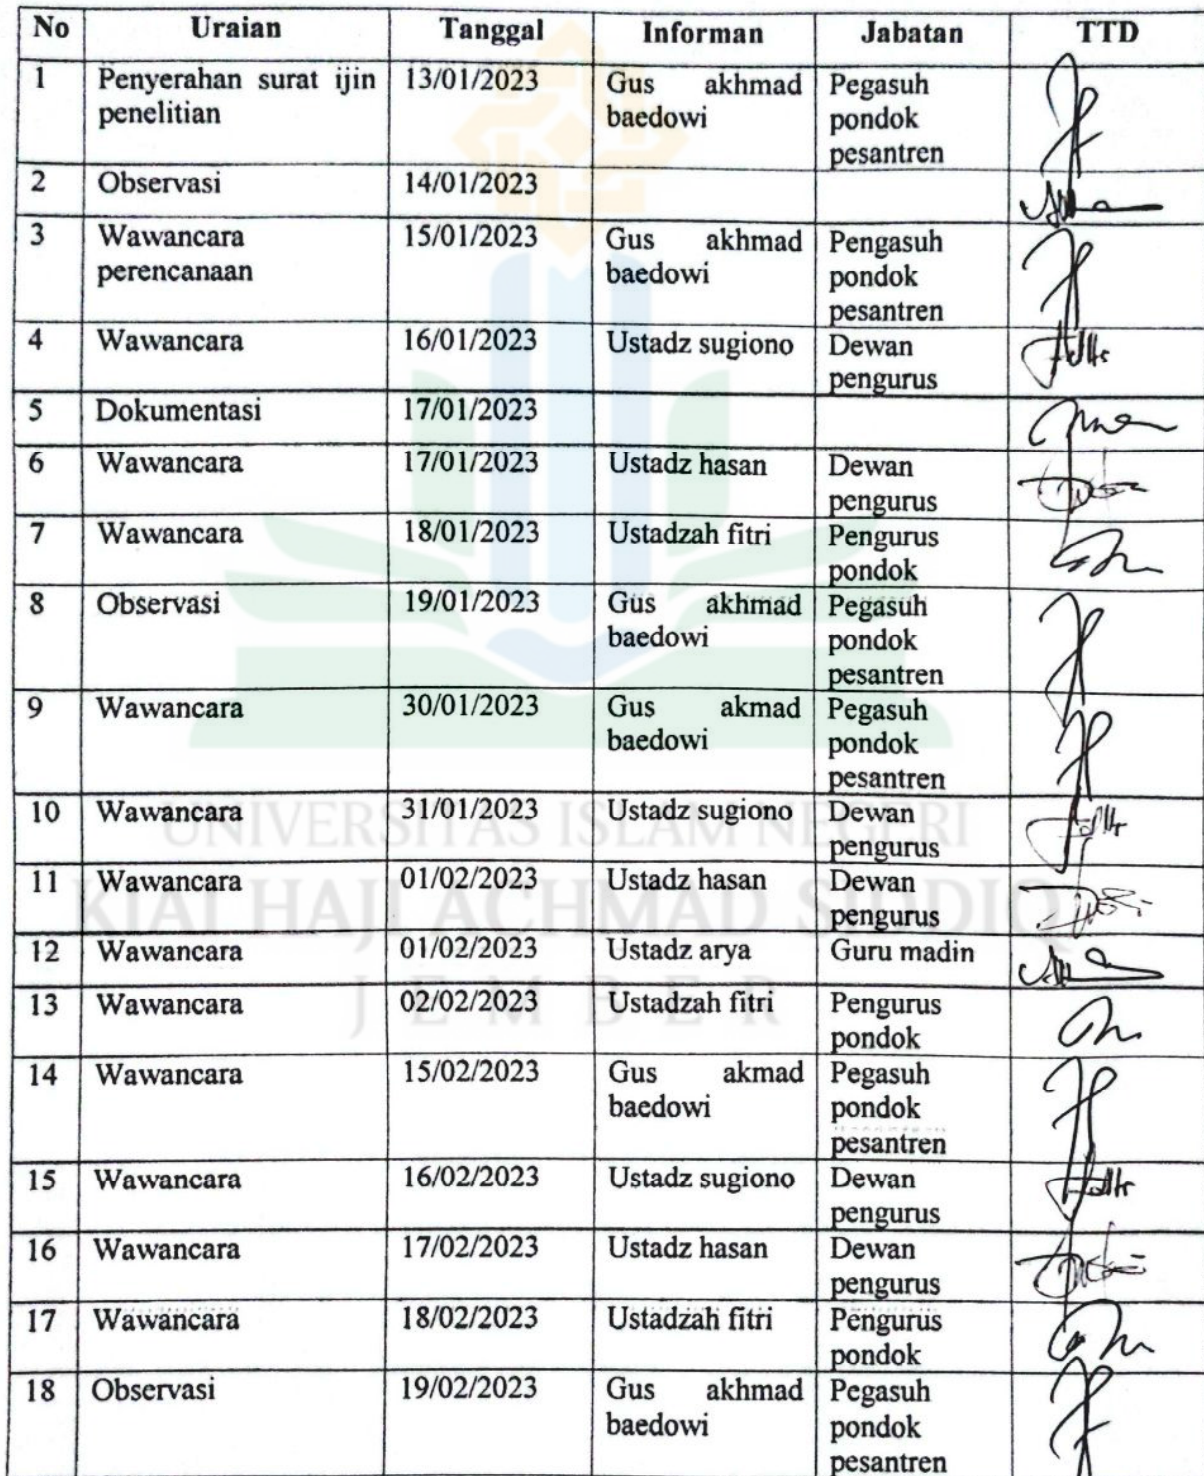 No Uraian Tanggal Informan Jabatan TTD
1 Penyerahan surat ijin 13/01/2023 Gus akhmad Pegasuh
penelitian baedowi pondok
pesantren
2 Observasi 14/01/2023
3 Wawancara 15/01/2023 Gus akhmad Pengasuh
perencanaan baedowi pondok
pesantren
4 Wawancara 16/01/2023 Ustadz sugiono Dewan
pengurus
5 Dokumentasi 17/01/2023
6 Wawancara 17/01/2023 Ustadz hasan Dewan
pengurus
7 Wawancara 18/01/2023 Ustadzah fitri Pengurus
pondok
8 Observasi 19/01/2023 Gus akhmad Pegasuh
baedowi pondok
pesantren
9 Wawancara 30/01/2023 Gus akmad Pegasuh
baedowi pondok
pesantren
10 Wawancara 31/01/2023 Ustadz sugiono Dewan
pengurus
11 Wawancara 01/02/2023 Ustadz hasan Dewan
pengurus
12 Wawancara 01/02/2023 Ustadz arya Guru madin
13 Wawancara 02/02/2023 Ustadzah fitri Pengurus
pondok
14 Wawancara 15/02/2023 Gus akmad Pegasuh
baedowi pondok
pesantren
15 Wawancara 16/02/2023 Ustadz sugiono Dewan
pengurus
16 Wawancara 17/02/2023 Ustadz hasan Dewan
pengurus
17 Wawancara 18/02/2023 Ustadzah fitri Pengurus
pondok
18 Observasi 19/02/2023 Gus akhmad Pegasuh
baedowi pondok
pesantren
UNIVERSITAS ISLAM NEGERI
KIAI HAJI ACHMAD SIDDIQ
JEMBER